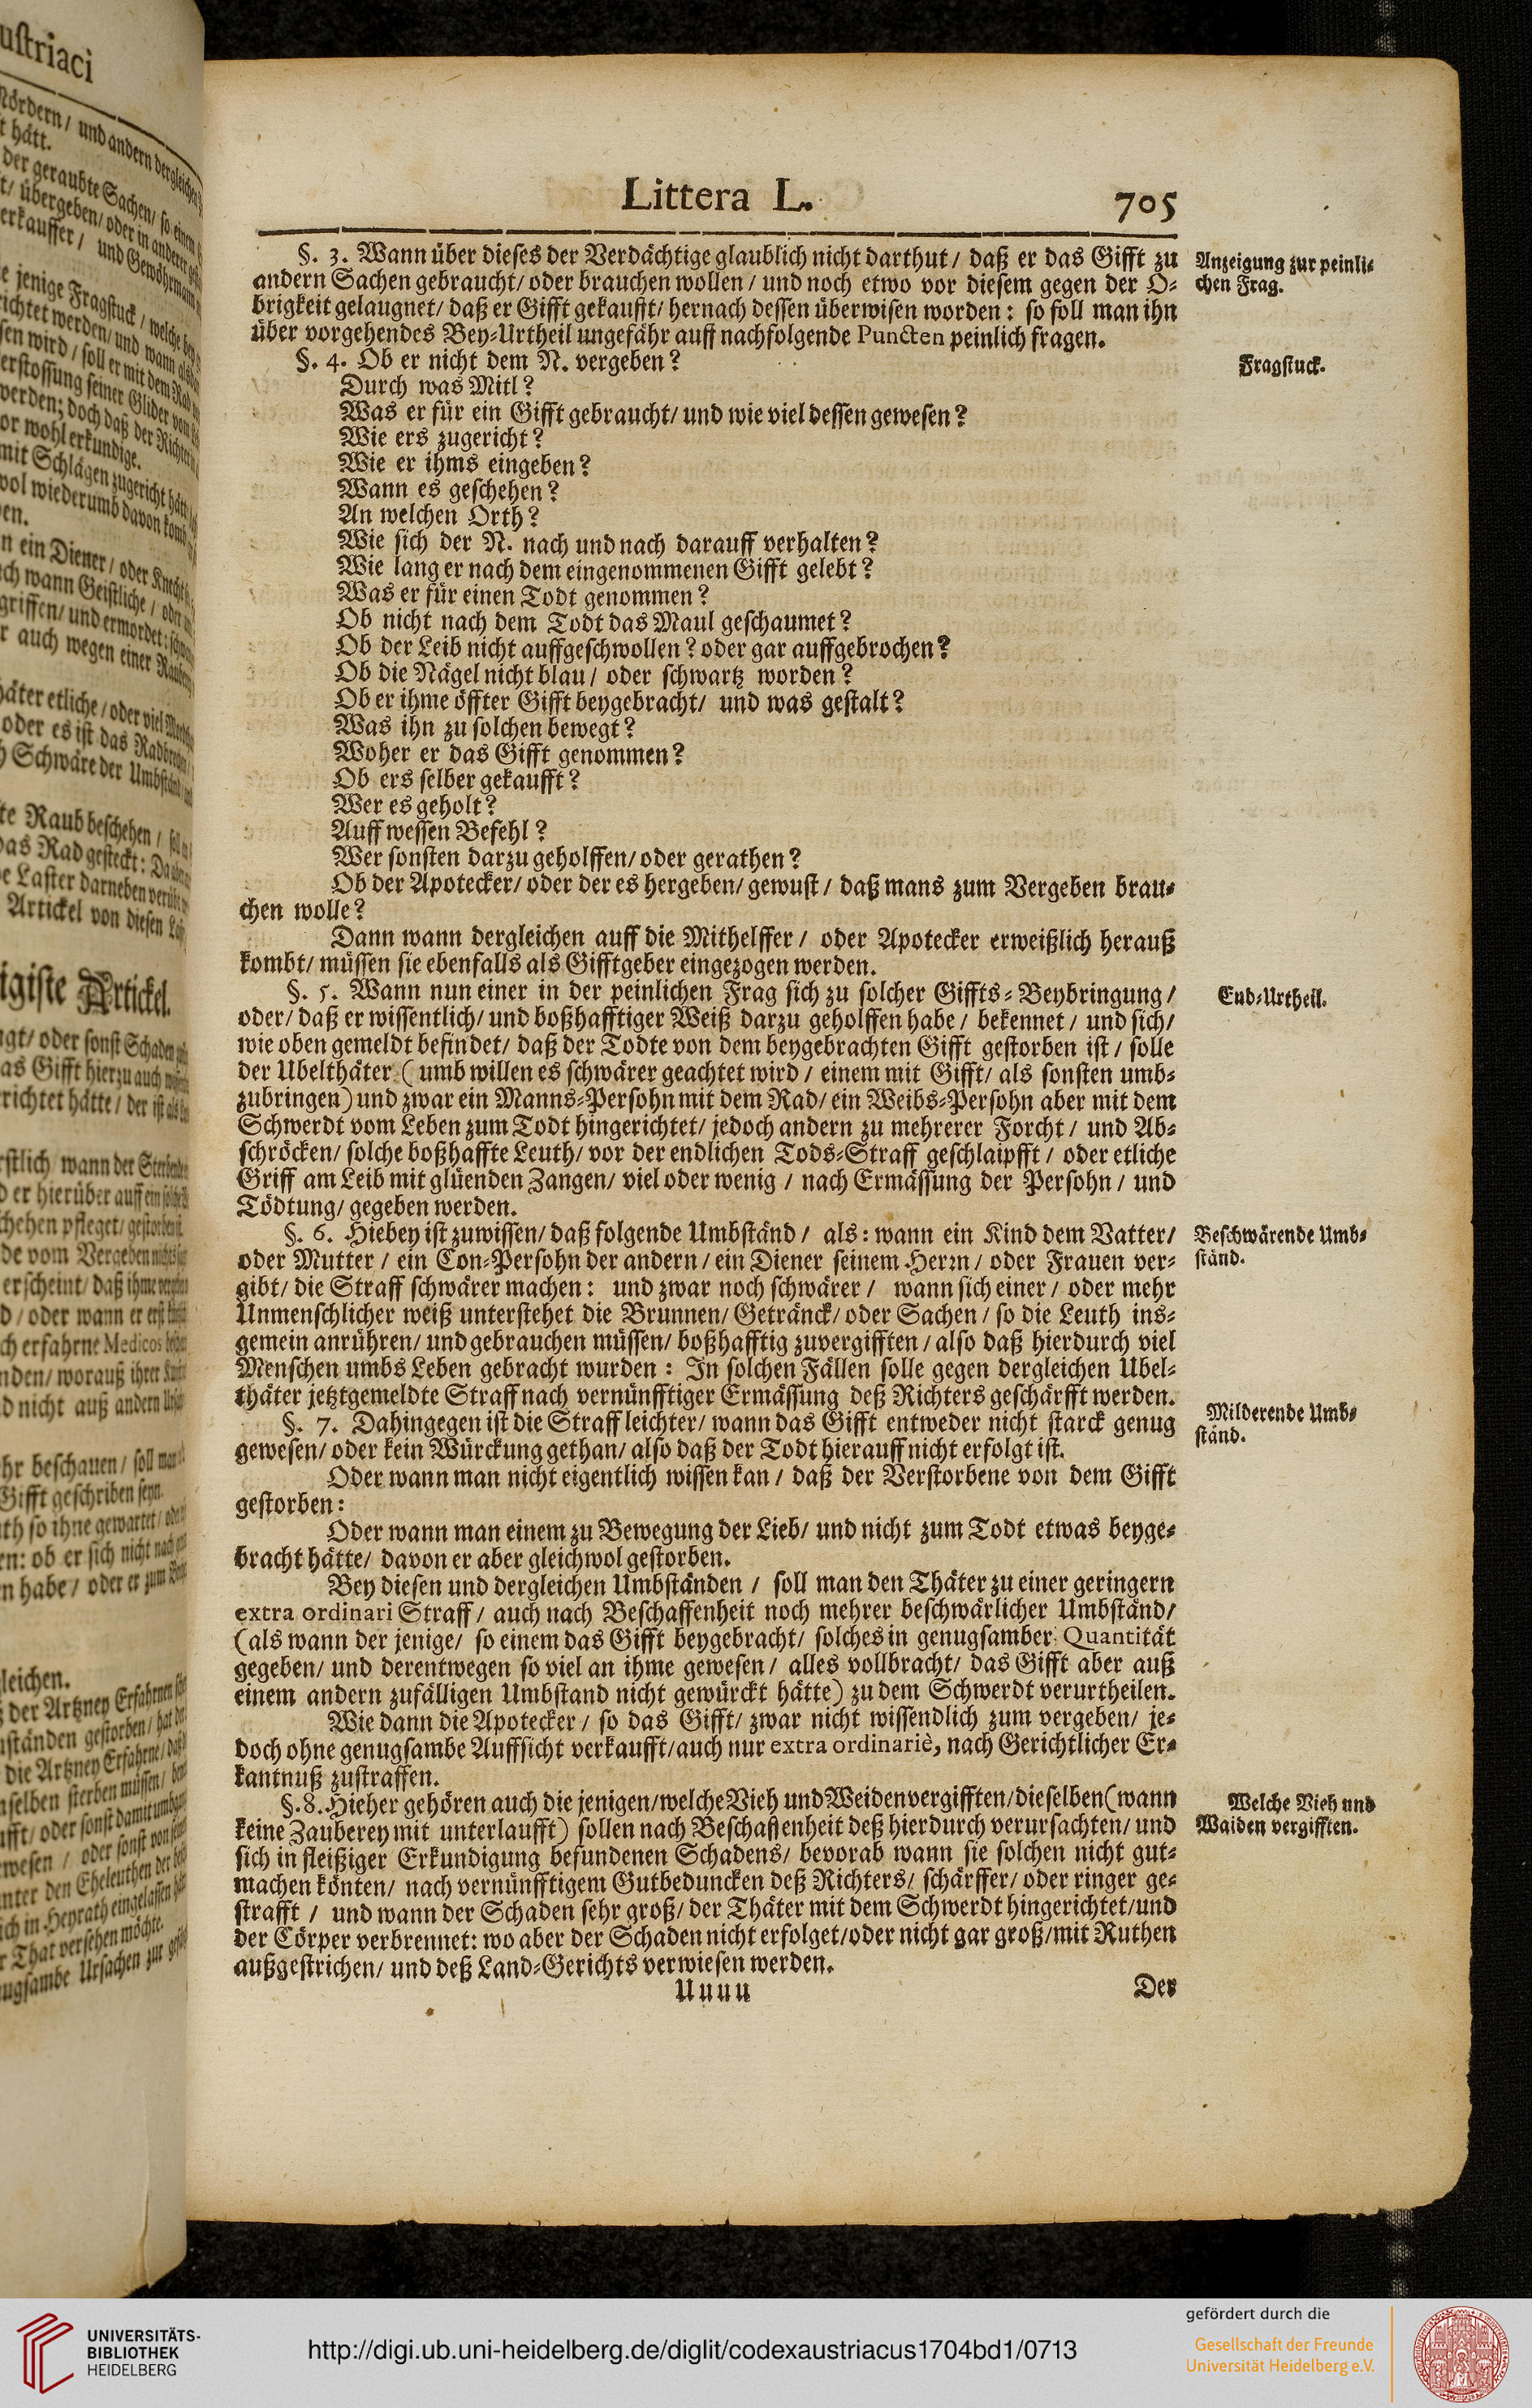 Littera L.
705
§. 3. Wann über dieses der Verdächtige glaublich nicht darthut / daß er das Gifft zu
andern Sachen gebraucht / oder brauchen wollen / und noch etwo vor diesem gegen der O-
brigkeit gelaugnet / daß er Gifft gekaufft / hernach dessen überwisen worden : so soll man ihn
über vorgehendes Bey-Urtheil ungefähr auff nachfolgende Puncten peinlich fragen.
Anzeigung zur peinli-
chen Frag.
§. 4. Ob er nicht dem N. vergeben ?
Fragstuck.
Durch was Mitl ?
Was er für ein Gifft gebraucht / und wie viel dessen gewesen ?
Wie ers zugericht ?
Wie er ihms eingeben ?
Wann es geschehen ?
An welchen Orth ?
Wie sich der N. nach und nach darauff verhalten ?
Wie lang er nach dem eingenommenen Gifft gelebt ?
Was er für einen Todt genommen ?
Ob nicht nach dem Todt das Maul geschaumet ?
Ob der Leib nicht auffgeschwollen ? oder gar auffgebrochen ?
Ob die Nägel nicht blau / oder schwartz worden ?
Ob er ihme öffter Gifft beygebracht / und was gestalt ?
Was ihn zu solchen bewegt ?
Woher er das Gifft genommen ?
Ob ers selber gekaufft ?
Wer es geholt ?
Auff wessen Befehl ?
Wer sonsten darzu geholffen / oder gerathen ?
Ob der Apotecker / oder der es hergeben / gewust / daß mans zum Vergeben brau-
chen wolle ?
Dann wann dergleichen auff die Mithelffer / oder Apotecker erweißlich herauß
kombt / müssen sie ebenfalls als Gifftgeber eingezogen werden.
§. 5. Wann nun einer in der peinlichen Frag sich zu solcher Giffts-Beybringung /
oder / daß er wissentlich / und boßhafftiger Weiß darzu geholffen habe / bekennet / und sich /
wie oben gemeldt befindet / daß der Todte von dem beygebrachten Gifft gestorben ist / solle
der Ubelthäter ( umb willen es schwärer geachtet wird / einem mit Gifft / als sonsten umb-
zubringen ) und zwar ein Manns-Persohn mit dem Rad / ein Weibs-Persohn aber mit dem
Schwerdt vom Leben zum Todt hingerichtet / jedoch andern zu mehrerer Forcht / und Ab-
schröcken / solche boßhaffte Leuth / vor der endlichen Tods-Straff geschlaipfft / oder etliche
Griff am Leib mit glüenden Zangen / viel oder wenig / nach Ermässung der Persohn / und
Tödtung / gegeben werden.
End-Urtheil.
§. 6. Hiebey ist zuwissen / daß folgende Umbständ / als : wann ein Kind dem Vatter /
oder Mutter / ein Con-Persohn der andern / ein Diener seinem Herrn / oder Frauen ver-
gibt / die Straff schwärer machen : und zwar noch schwärer / wann sich einer / oder mehr
Unmenschlicher weiß unterstehet die Brunnen / Getränck / oder Sachen / so die Leuth ins-
gemein anrühren / und gebrauchen müssen / boßhafftig zuvergifften / also daß hierdurch viel
Menschen umbs Leben gebracht wurden : In solchen Fällen solle gegen dergleichen Ubel-
thäter jetztgemeldte Straff nach vernünfftiger Ermässung deß Richters geschärfft werden.
Beschwärende Umb-
ständ.
§. 7. Dahingegen ist die Straff leichter / wann das Gifft entweder nicht starck genug
gewesen / oder kein Würckung gethan / also daß der Todt hierauff nicht erfolgt ist.
Milderende Umb-
ständ.
Oder wann man nicht eigentlich wissen kan / daß der Verstorbene von dem Gifft
gestorben :
Oder wann man einem zu Bewegung der Lieb / und nicht zum Todt etwas beyge-
bracht hätte / davon er aber gleichwol gestorben.
Bey diesen und dergleichen Umbständen / soll man den Thäter zu einer geringern
extra ordinari Straff / auch nach Beschaffenheit noch mehrer beschwärlicher Umbständ /
(als wann der jenige / so einem das Gifft beygebracht / solches in genugsamber Quantität
gegeben / und derentwegen so viel an ihme gewesen / alles vollbracht / das Gifft aber auß
einem andern zufälligen Umbstand nicht gewürckt hätte) zu dem Schwerdt verurtheilen.
Wie dann die Apotecker / so das Gifft / zwar nicht wissendlich zum vergeben / je-
doch ohne genugsambe Auffsicht verkaufft / auch nur extra ordinariè, nach Gerichtlicher Er-
kantnuß zustraffen.
§. 8. Hieher gehören auch die jenigen / welche Vieh und Weiden vergifften / dieselben ( wann
keine Zauberey mit unterlaufft ) sollen nach Beschaffenheit deß hierdurch verursachten / und
sich in fleißiger Erkundigung befundenen Schadens / bevorab wann sie solchen nicht gut-
machen könten / nach vernünfftigem Gutbeduncken deß Richters / schärffer / oder ringer ge-
strafft / und wann der Schaden sehr groß / der Thäter mit dem Schwerdt hingerichtet / und
der Cörper verbrennet : wo aber der Schaden nicht erfolget / oder nicht gar groß / mit Ruthen
außgestrichen / und deß Land-Gerichts verwiesen werden.
Welche Vieh und
Waiden vergifften.
Uuuu
Der
UNIVERSITÄTS-
BIBLIOTHEK
HEIDELBERG
http://digi.ub.uni-heidelberg.de/diglit/codexaustriacus1704bd1/0713
gefördert durch die
Gesellschaft der Freunde
Universität Heidelberg e.V.